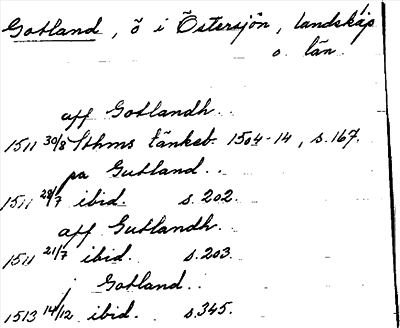 Gotland, ö i Östersjön, landskap
o. län.
aff Gotlandh..
1511 30/8 Sthms tänkeb. 1504-14, s. 167.
pa Gutland..
1511 28/7 ibid. s. 202.
aff Gutlandh.
1511 21/7 ibid. s. 203.
i Gotland..
1513 14/12 ibid. s. 345.